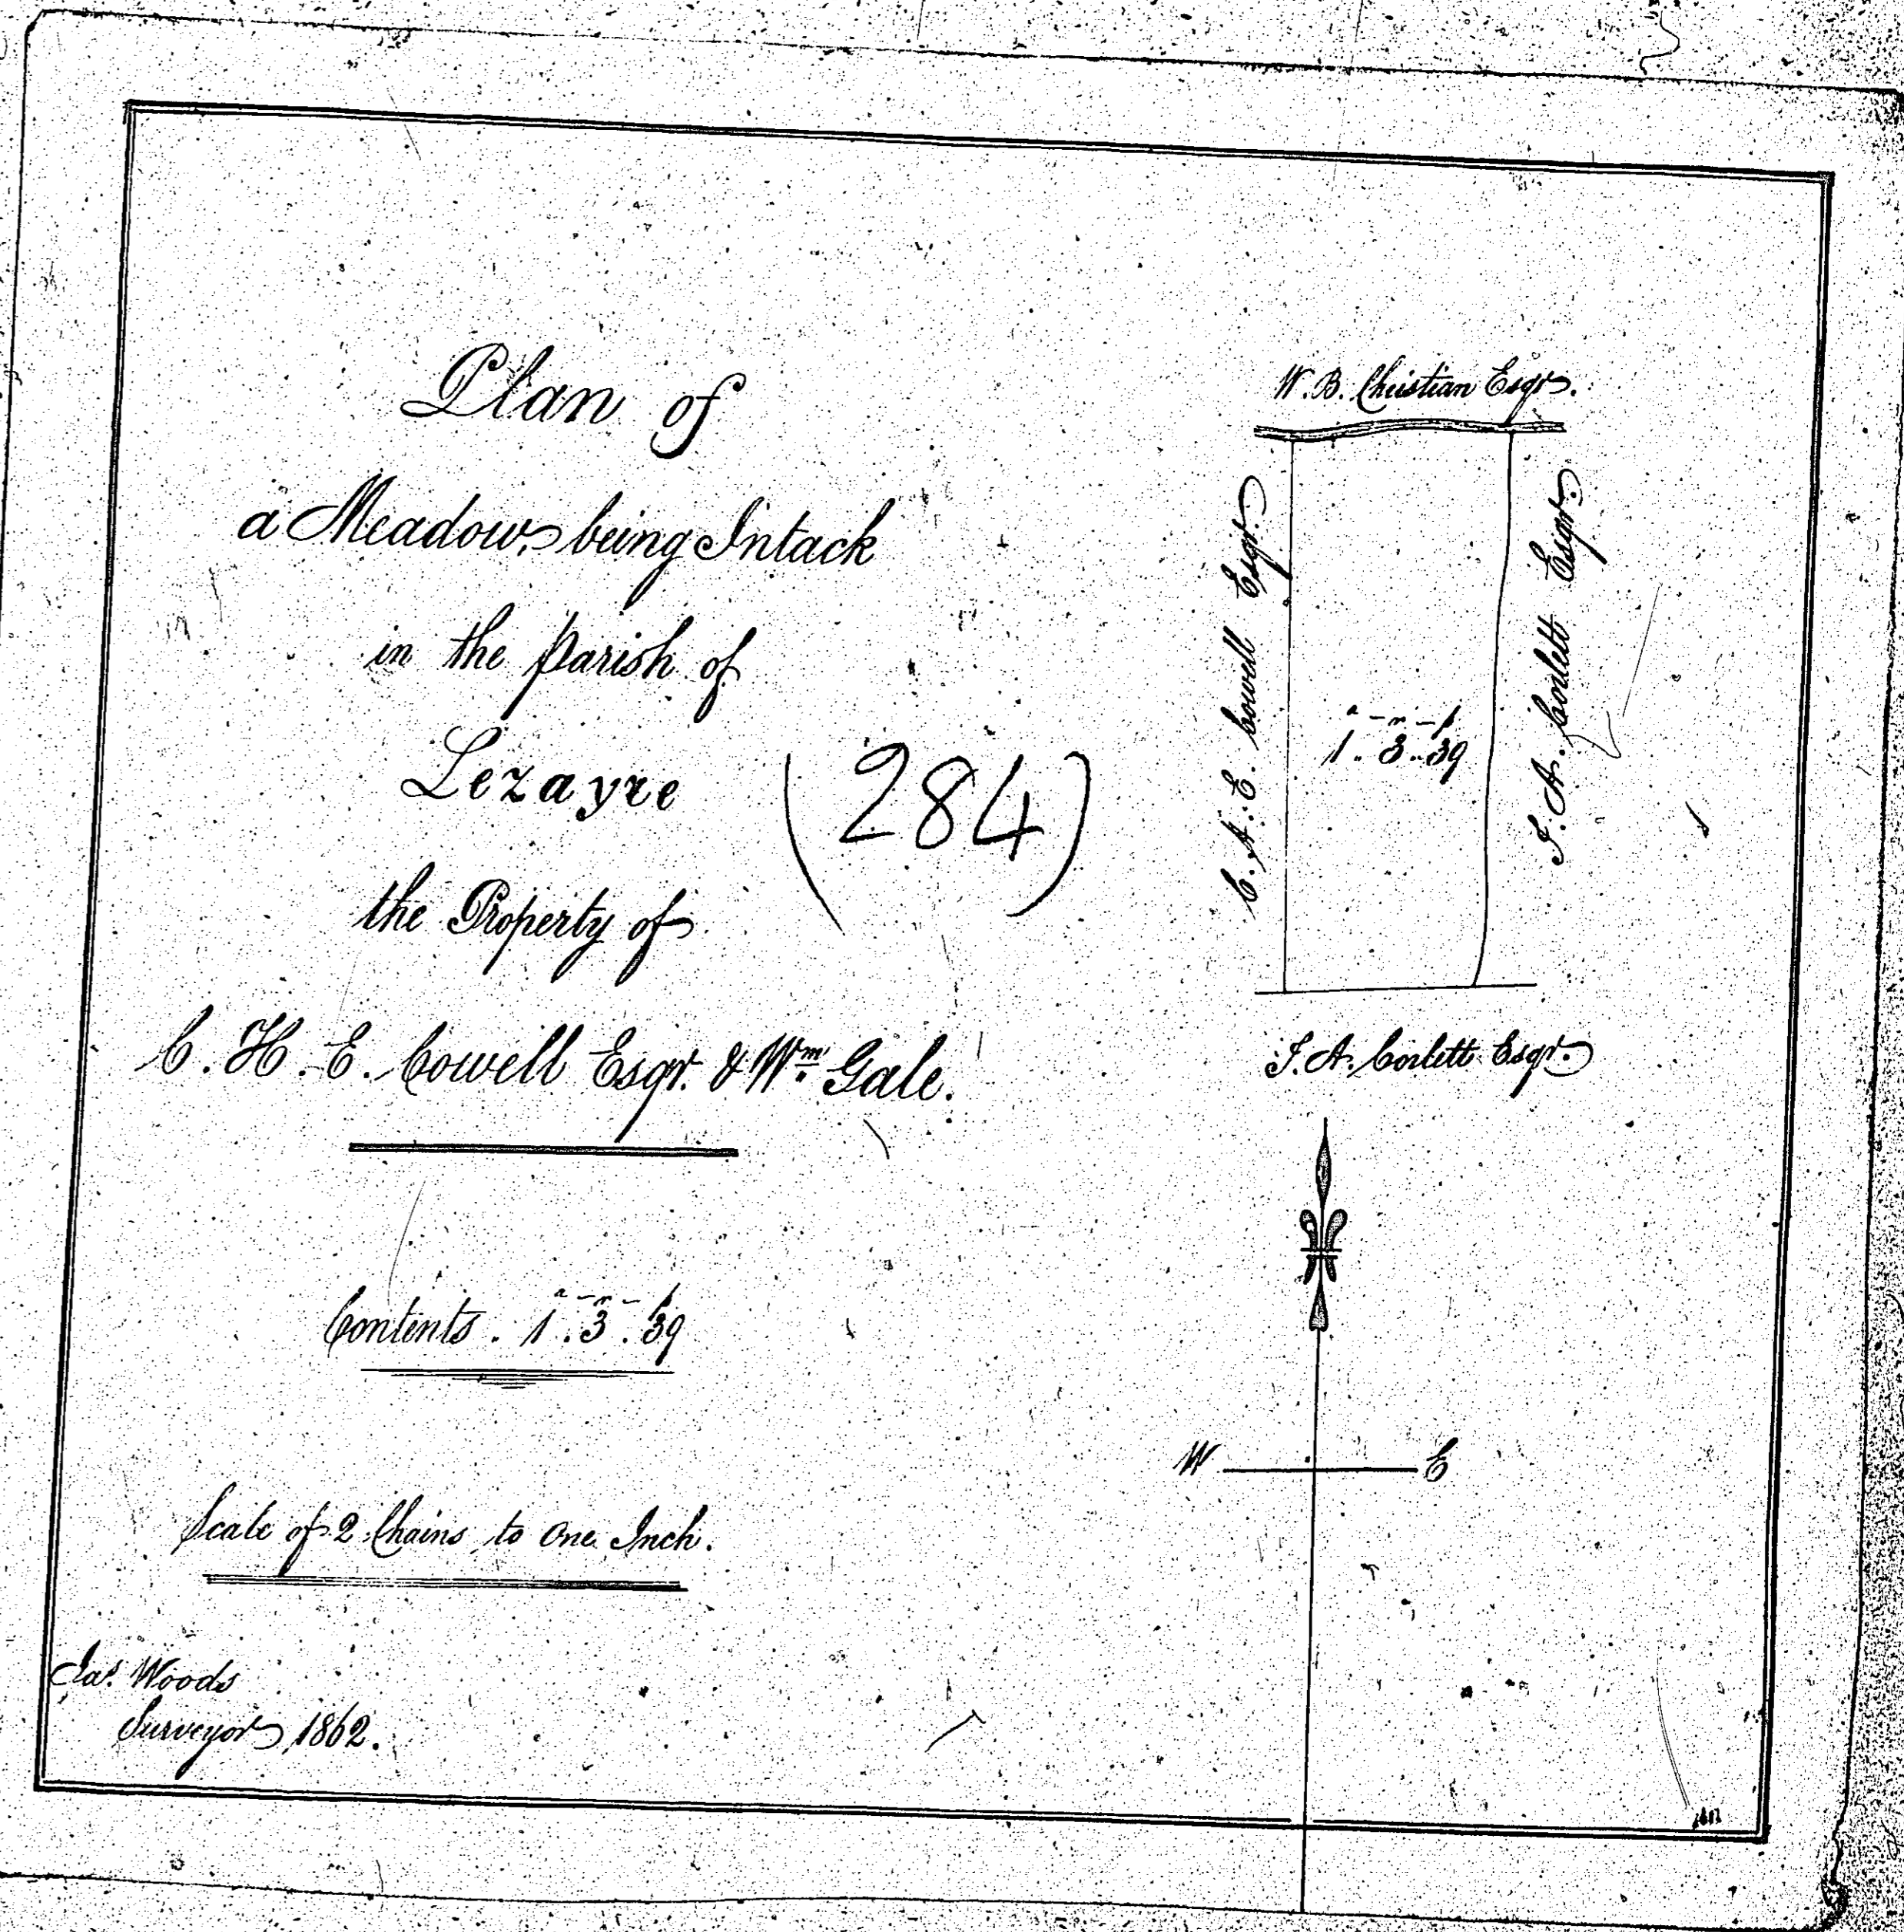 Plan of
a Meadow, being Intack
in the parish of
Lezayre
(284)
the Property of
C. H. E. Cowell Esqr. & Wm. Gale.
Contents. 1. 3. 39
a - r - p
Scale of 2 Chains to One Inch.
Jas. Woods
Surveyor 1862.
W. B. Christian Esqr.
C. H. E. Cowell Esqr.
a - r - p
1. 3. 39
J. A. Corlett Esqr.
J. A. Corlett Esqr.
W E